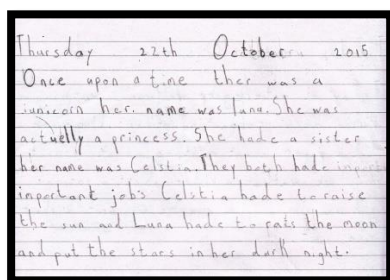 Thursday 22th October 2015
Once upon a time ther was a
unicorn her name was luna. She was
actuelly a princess. She hade a sister
her name was Celstia. They both hade
important job's Celstia hade to raise
the sun and Luna hade to rats the moon
and put the stars in her dark night.